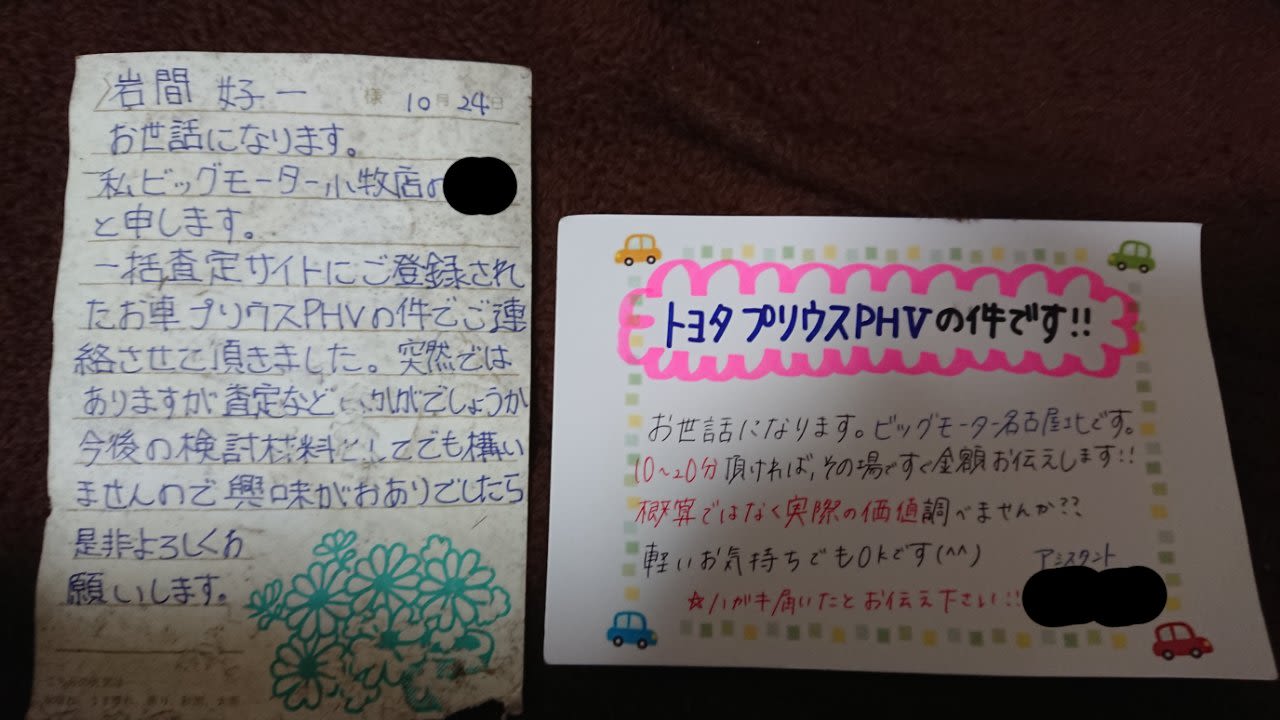 岩間 好一 様 10月24日
お世話になります。
私ビッグモーター小牧店の
と申します。
一括査定サイトにご登録され
たお車プリウスPHVの件でご連
絡させて頂きました。突然では
ありますが査定などいかがでしょうか
今後の検討材料としてでも構い
ませんので興味がおありでしたら
是非よろしくお
願いします。
トヨタ プリウスPHVの件です!!
お世話になります。ビッグモーター名古屋北です。
10〜20分頂ければ、その場ですぐ金額お伝えします!!
概算ではなく実際の価値調べませんか??
軽いお気持ちでもOKです(^^)
アシスタント
☆ハガキ届いたとお伝え下さい!!